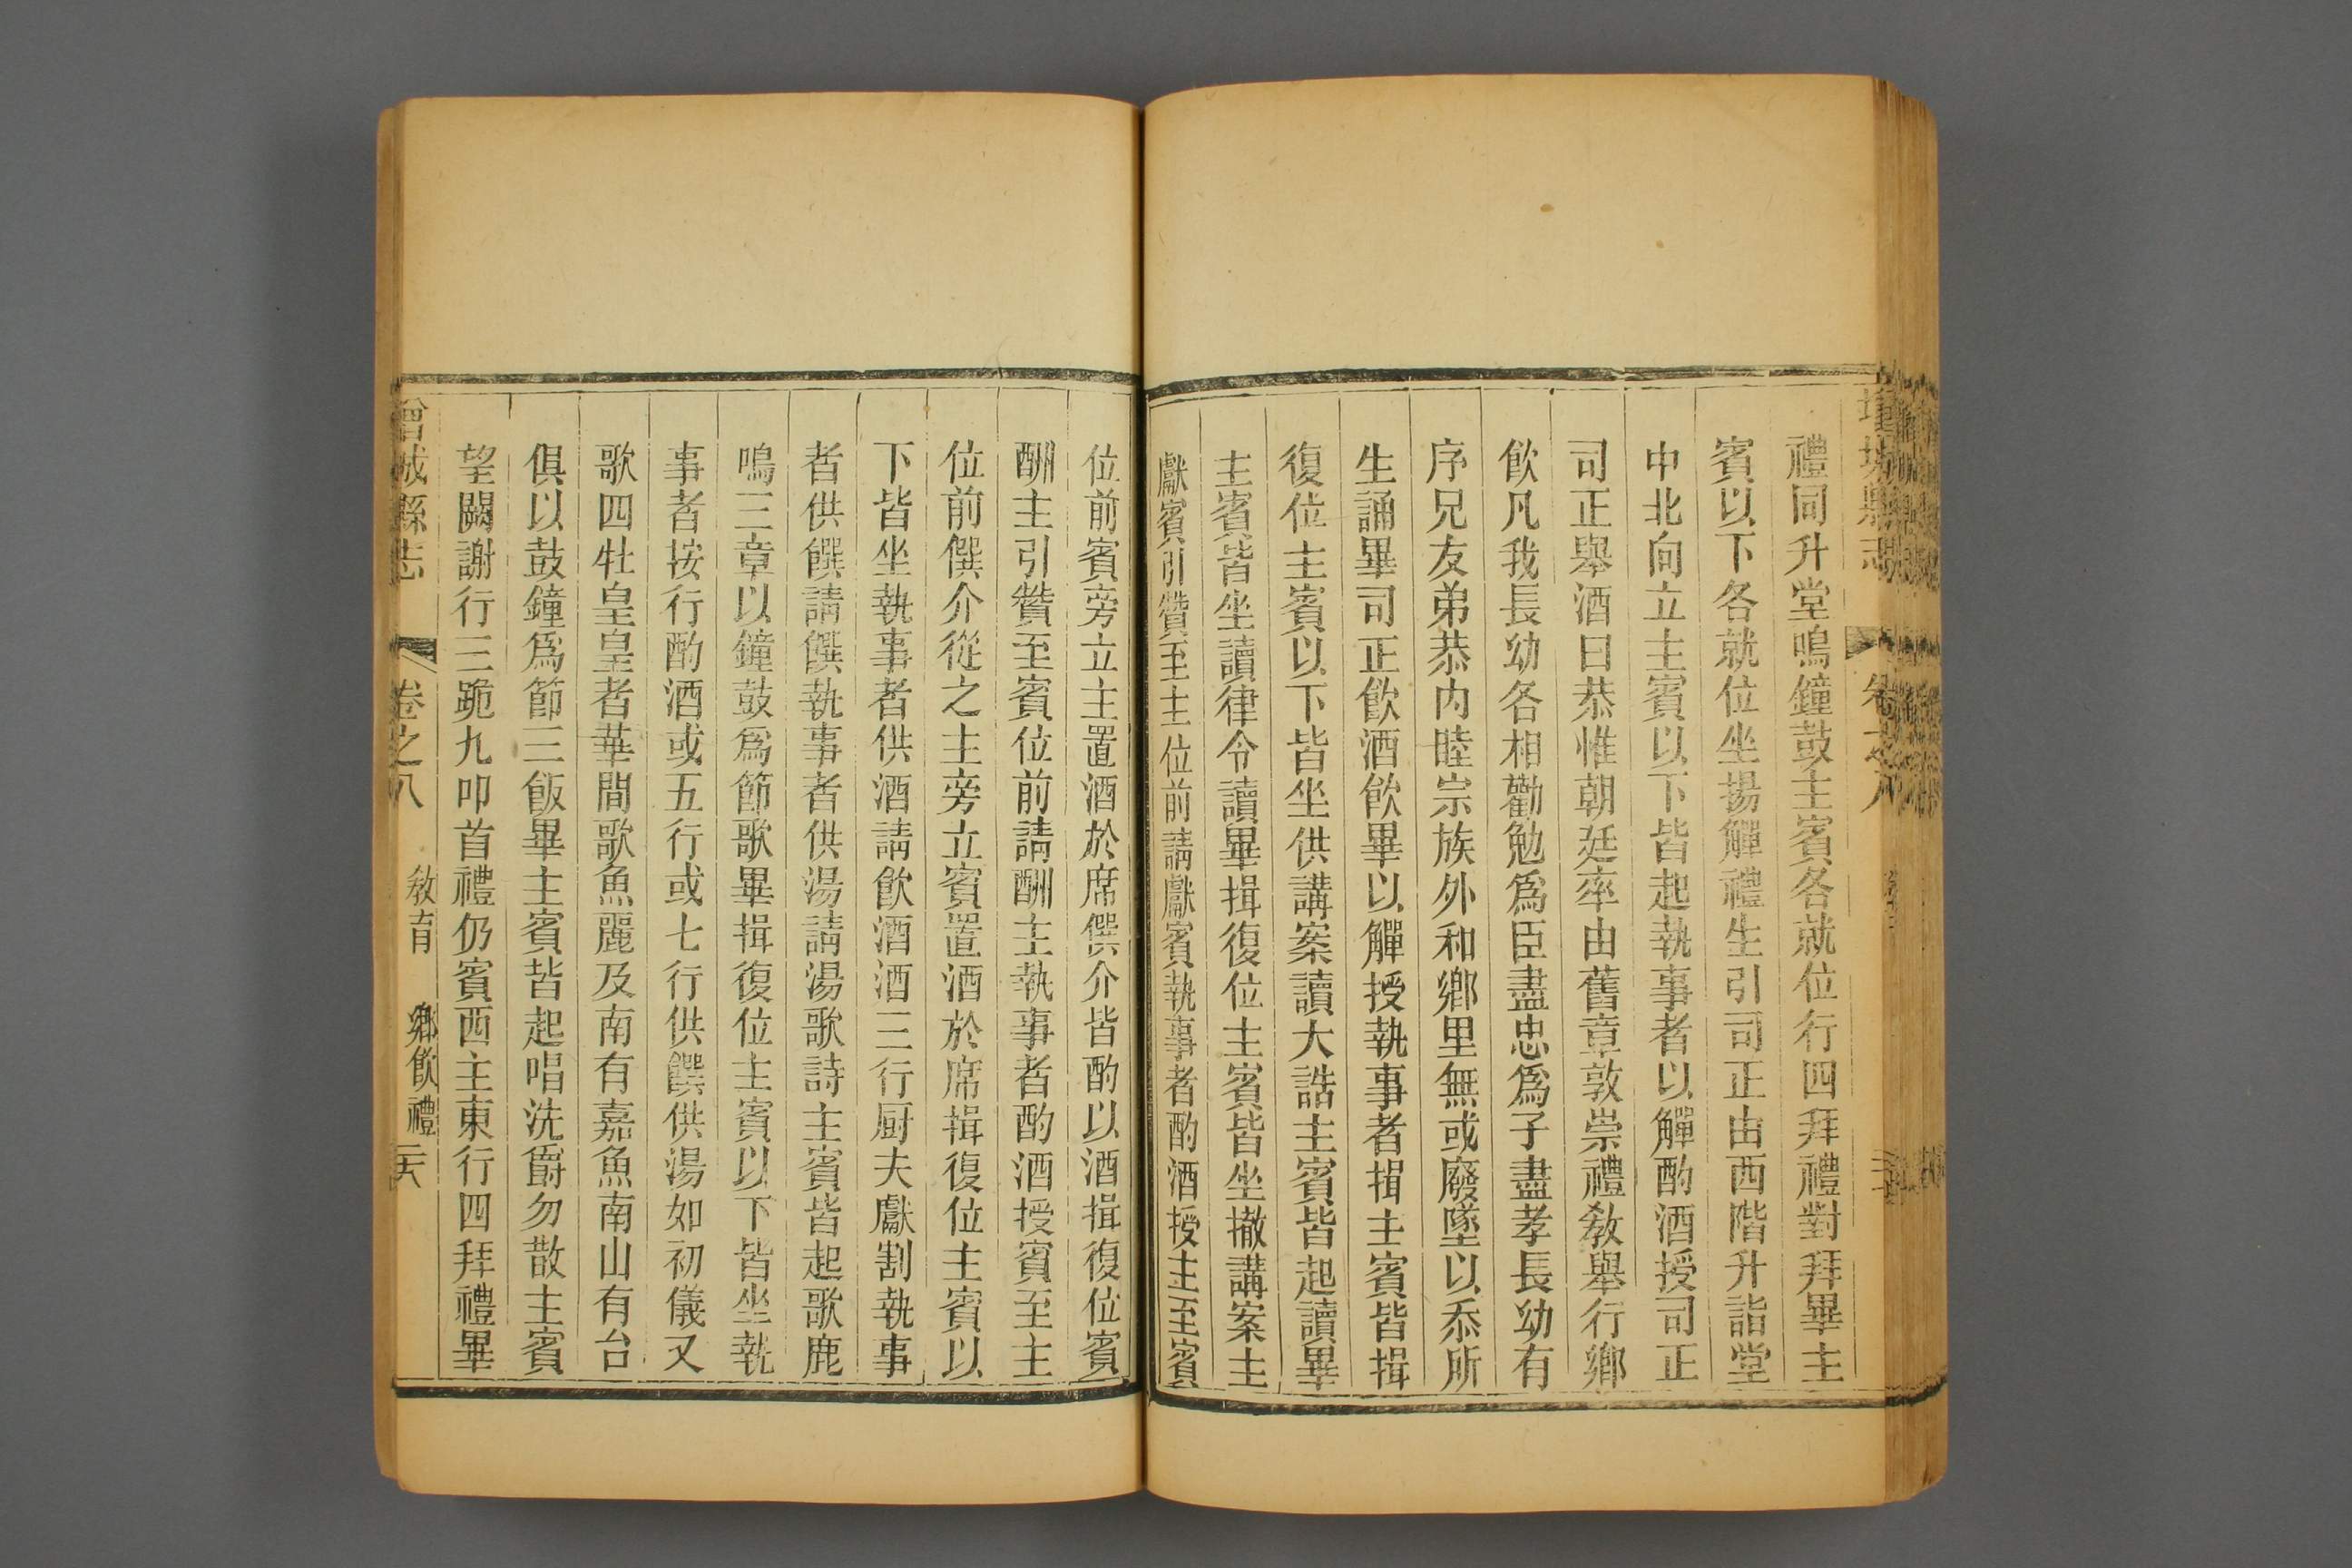 增城縣志
卷之八
禮同升堂鳴鐘鼓主賓各就位行四拜禮對拜畢主
賓以下各就位坐揚觶禮生引司正由西階升詣堂
中北向立主賓以下皆起執事者以觶酌酒授司正
司正舉酒曰恭惟朝廷率由舊章敦崇禮敎舉行鄉
飲凡我長幼各相勸勉爲臣盡忠爲子盡孝長幼有
序兄友弟恭內睦宗族外和鄉里無或廢墜以忝所
生誦畢司正飲酒飲畢以觶授執事者揖主賓皆揖
復位主賓以下皆坐供講案讀大誥主賓皆起讀畢
主賓皆坐讀律令讀畢揖復位主賓皆坐撤講案主
獻賓引贊至主位前請獻賓執事者酌酒授主至賓
位前賓旁立主置酒於席僎介皆酌以酒揖復位賓
酬主引贊至賓位前請酬主執事者酌酒授賓至主
位前僎介從之主旁立賓置酒於席揖復位主賓以
下皆坐執事者供酒請飲酒酒三行厨夫獻割執事
者供饌請饌執事者供湯請湯歌詩主賓皆起歌鹿
鳴三章以鐘鼓爲節歌畢揖復位主賓以下皆坐執
事者按行酌酒或五行或七行供饌供湯如初儀又
歌四牡皇皇者華間歌魚麗及南有嘉魚南山有台
俱以鼓鐘爲節三飯畢主賓皆起唱洗爵勿散主賓
望闕謝行三跪九叩首禮仍賓西主東行四拜禮畢
曾城縣志
卷之八
敎育 鄉飲禮
二六